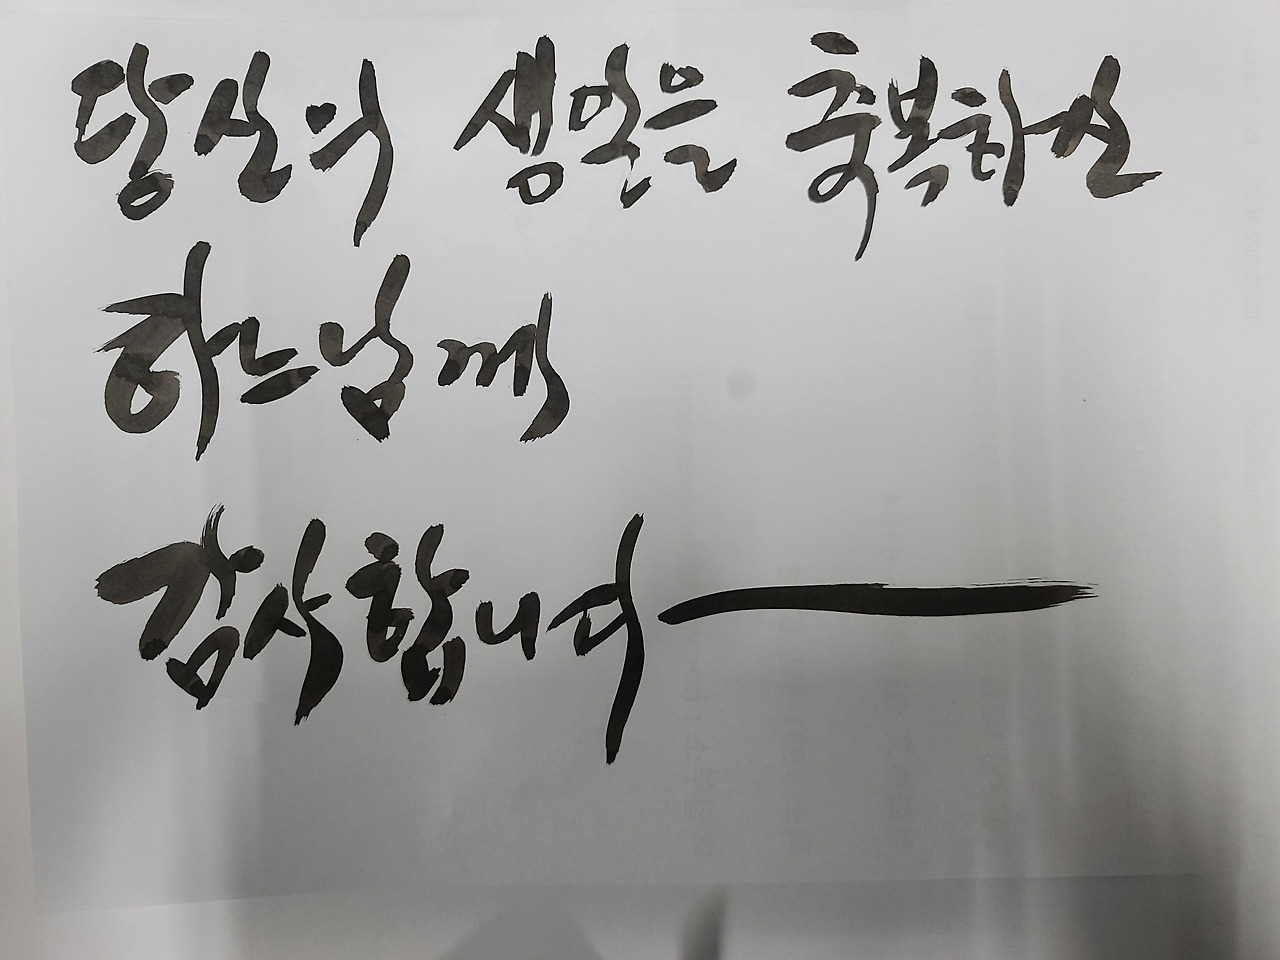 당신의 생일을 축복하신
하느님께
감사합니다